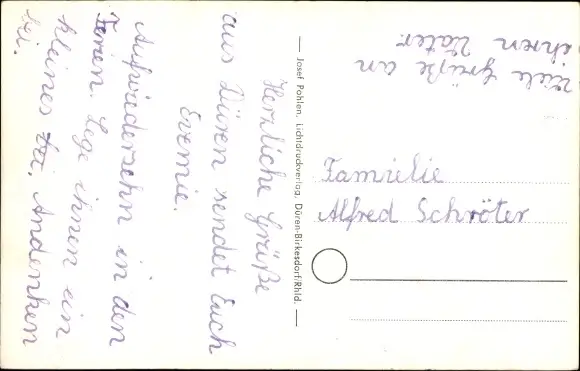 Herzliche Grüße
aus Düren sendet Euch
Evemie.
Aufwiedersehn in den
Ferien. Lege ihnen ein
kleines bei. Andenken
bei.
Viele Grüße an
ihren Vater.
Josef Pohlen, Lichtdruckverlag, Düren-Birkesdorf/Rhld.
Famielie
Alfred Schröter